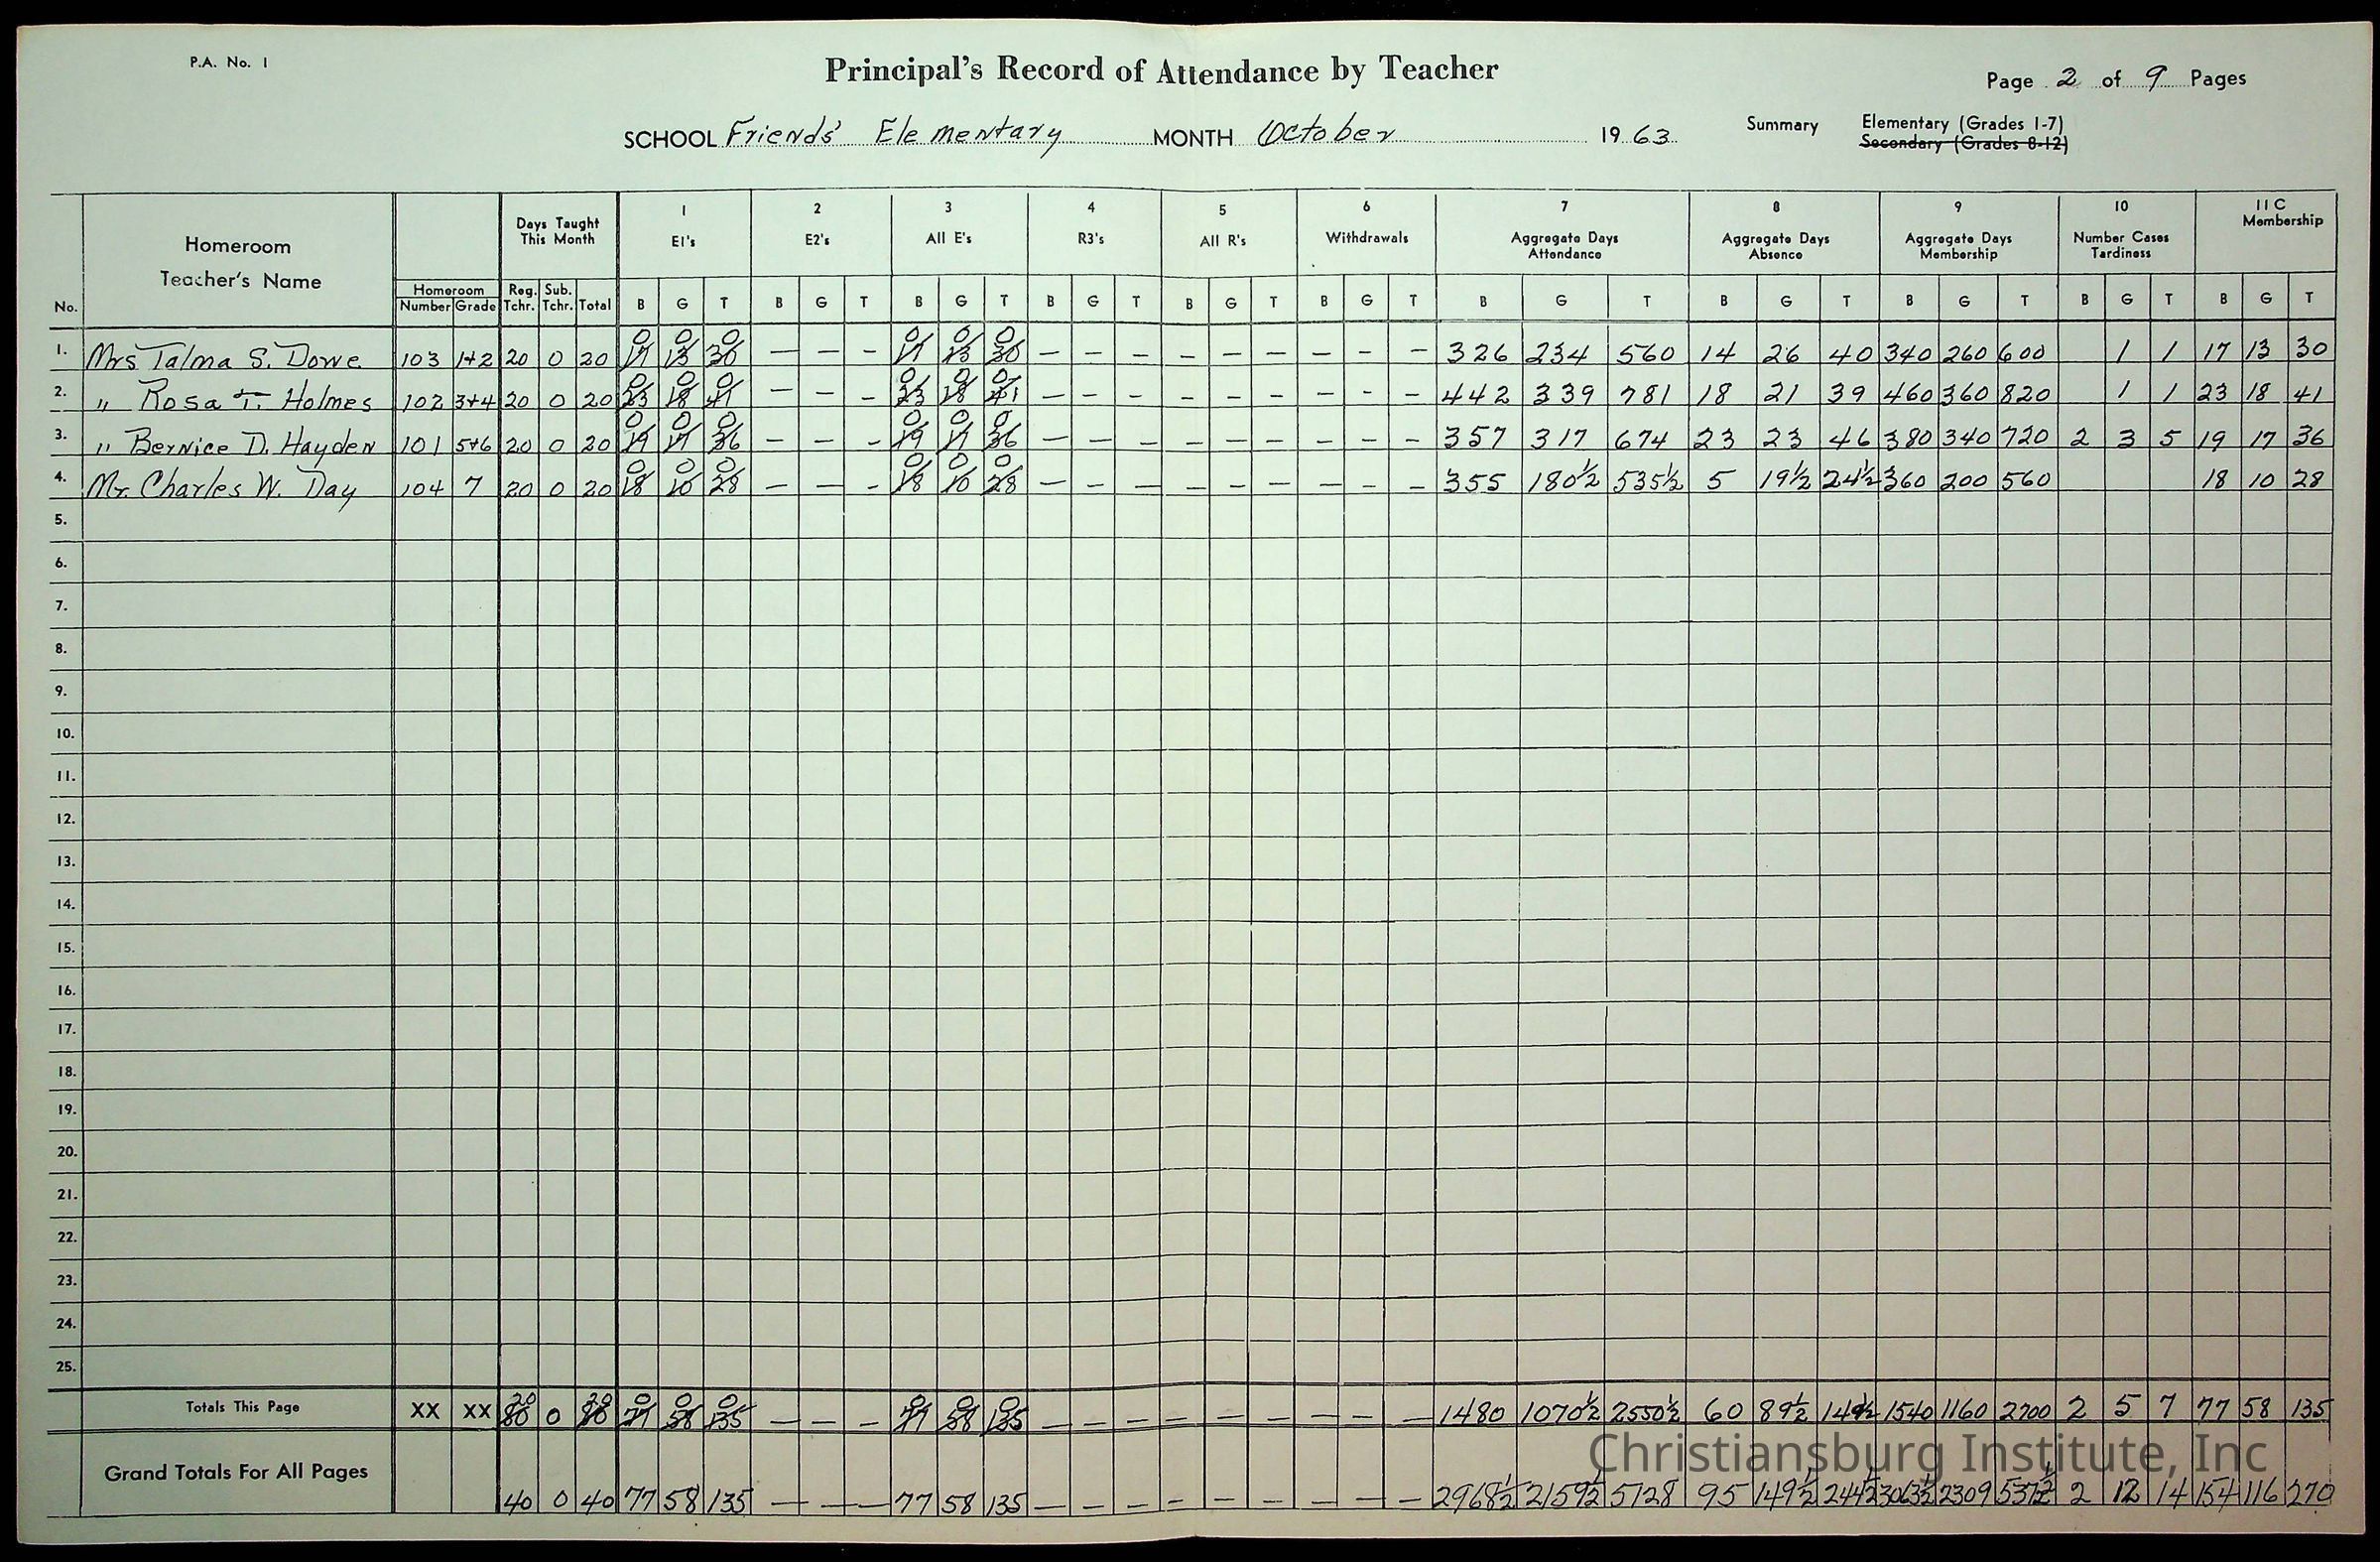 P.A. No. 1
Principal's Record of Attendance by Teacher
Page 2 of 9 Pages
SCHOOL Friends' Elementary MONTH October 19 63
Summary Elementary (Grades 1-7)
Secondary (Grades 8-12)
No. Homeroom Teacher's Name Homeroom Number Grade Days Taught This Month Reg. Tchr. Sub. Tchr. Total 1 E1's 2 E2's 3 All E's 4 R3's 5 All R's 6 Withdrawals 7 Aggregate Days Attendance 8 Aggregate Days Absence 9 Aggregate Days Membership 10 Number Cases Tardiness 11C Membership
B G T B G T B G T B G T B G T B G T B G T B G T B G T B G T B G T
1. Mrs Talma S. Dowe 103 1+2 20 0 20 0 17 0 13 0 30 — — — 0 17 0 13 0 30 — — — — — — — — — 326 234 560 14 26 40 340 260 600 1 1 17 13 30
2. " Rosa T. Holmes 102 3+4 20 0 20 0 23 0 18 0 41 — — — 0 23 0 18 0 41 — — — — — — — — — 442 339 781 18 21 39 460 360 820 1 1 23 18 41
3. " Bernice D. Hayden 101 5+6 20 0 20 0 19 0 17 0 36 — — — 0 19 0 17 0 36 — — — — — — — — — 357 317 674 23 23 46 380 340 720 2 3 5 19 17 36
4. Mr. Charles W. Day 104 7 20 0 20 0 18 0 10 0 28 — — — 0 18 0 10 0 28 — — — — — — — — — 355 180½ 535½ 5 19½ 24½ 360 200 560 18 10 28
5.
6.
7.
8.
9.
10.
11.
12.
13.
14.
15.
16.
17.
18.
19.
20.
21.
22.
23.
24.
25.
Totals This Page XX XX 20 80 0 20 80 0 77 0 58 0 135 — — — 0 77 0 58 0 135 — — — — — — — — — 1480 1070½ 2550½ 60 89½ 149½ 1540 1160 2700 2 5 7 77 58 135
Grand Totals For All Pages 40 0 40 77 58 135 — — — 77 58 135 — — — — — — — — — 2968½ 2159½ 5128 95 149½ 244½ 3063½ 2309 5372½ 2 12 14 154 116 270
Christiansburg Institute, Inc